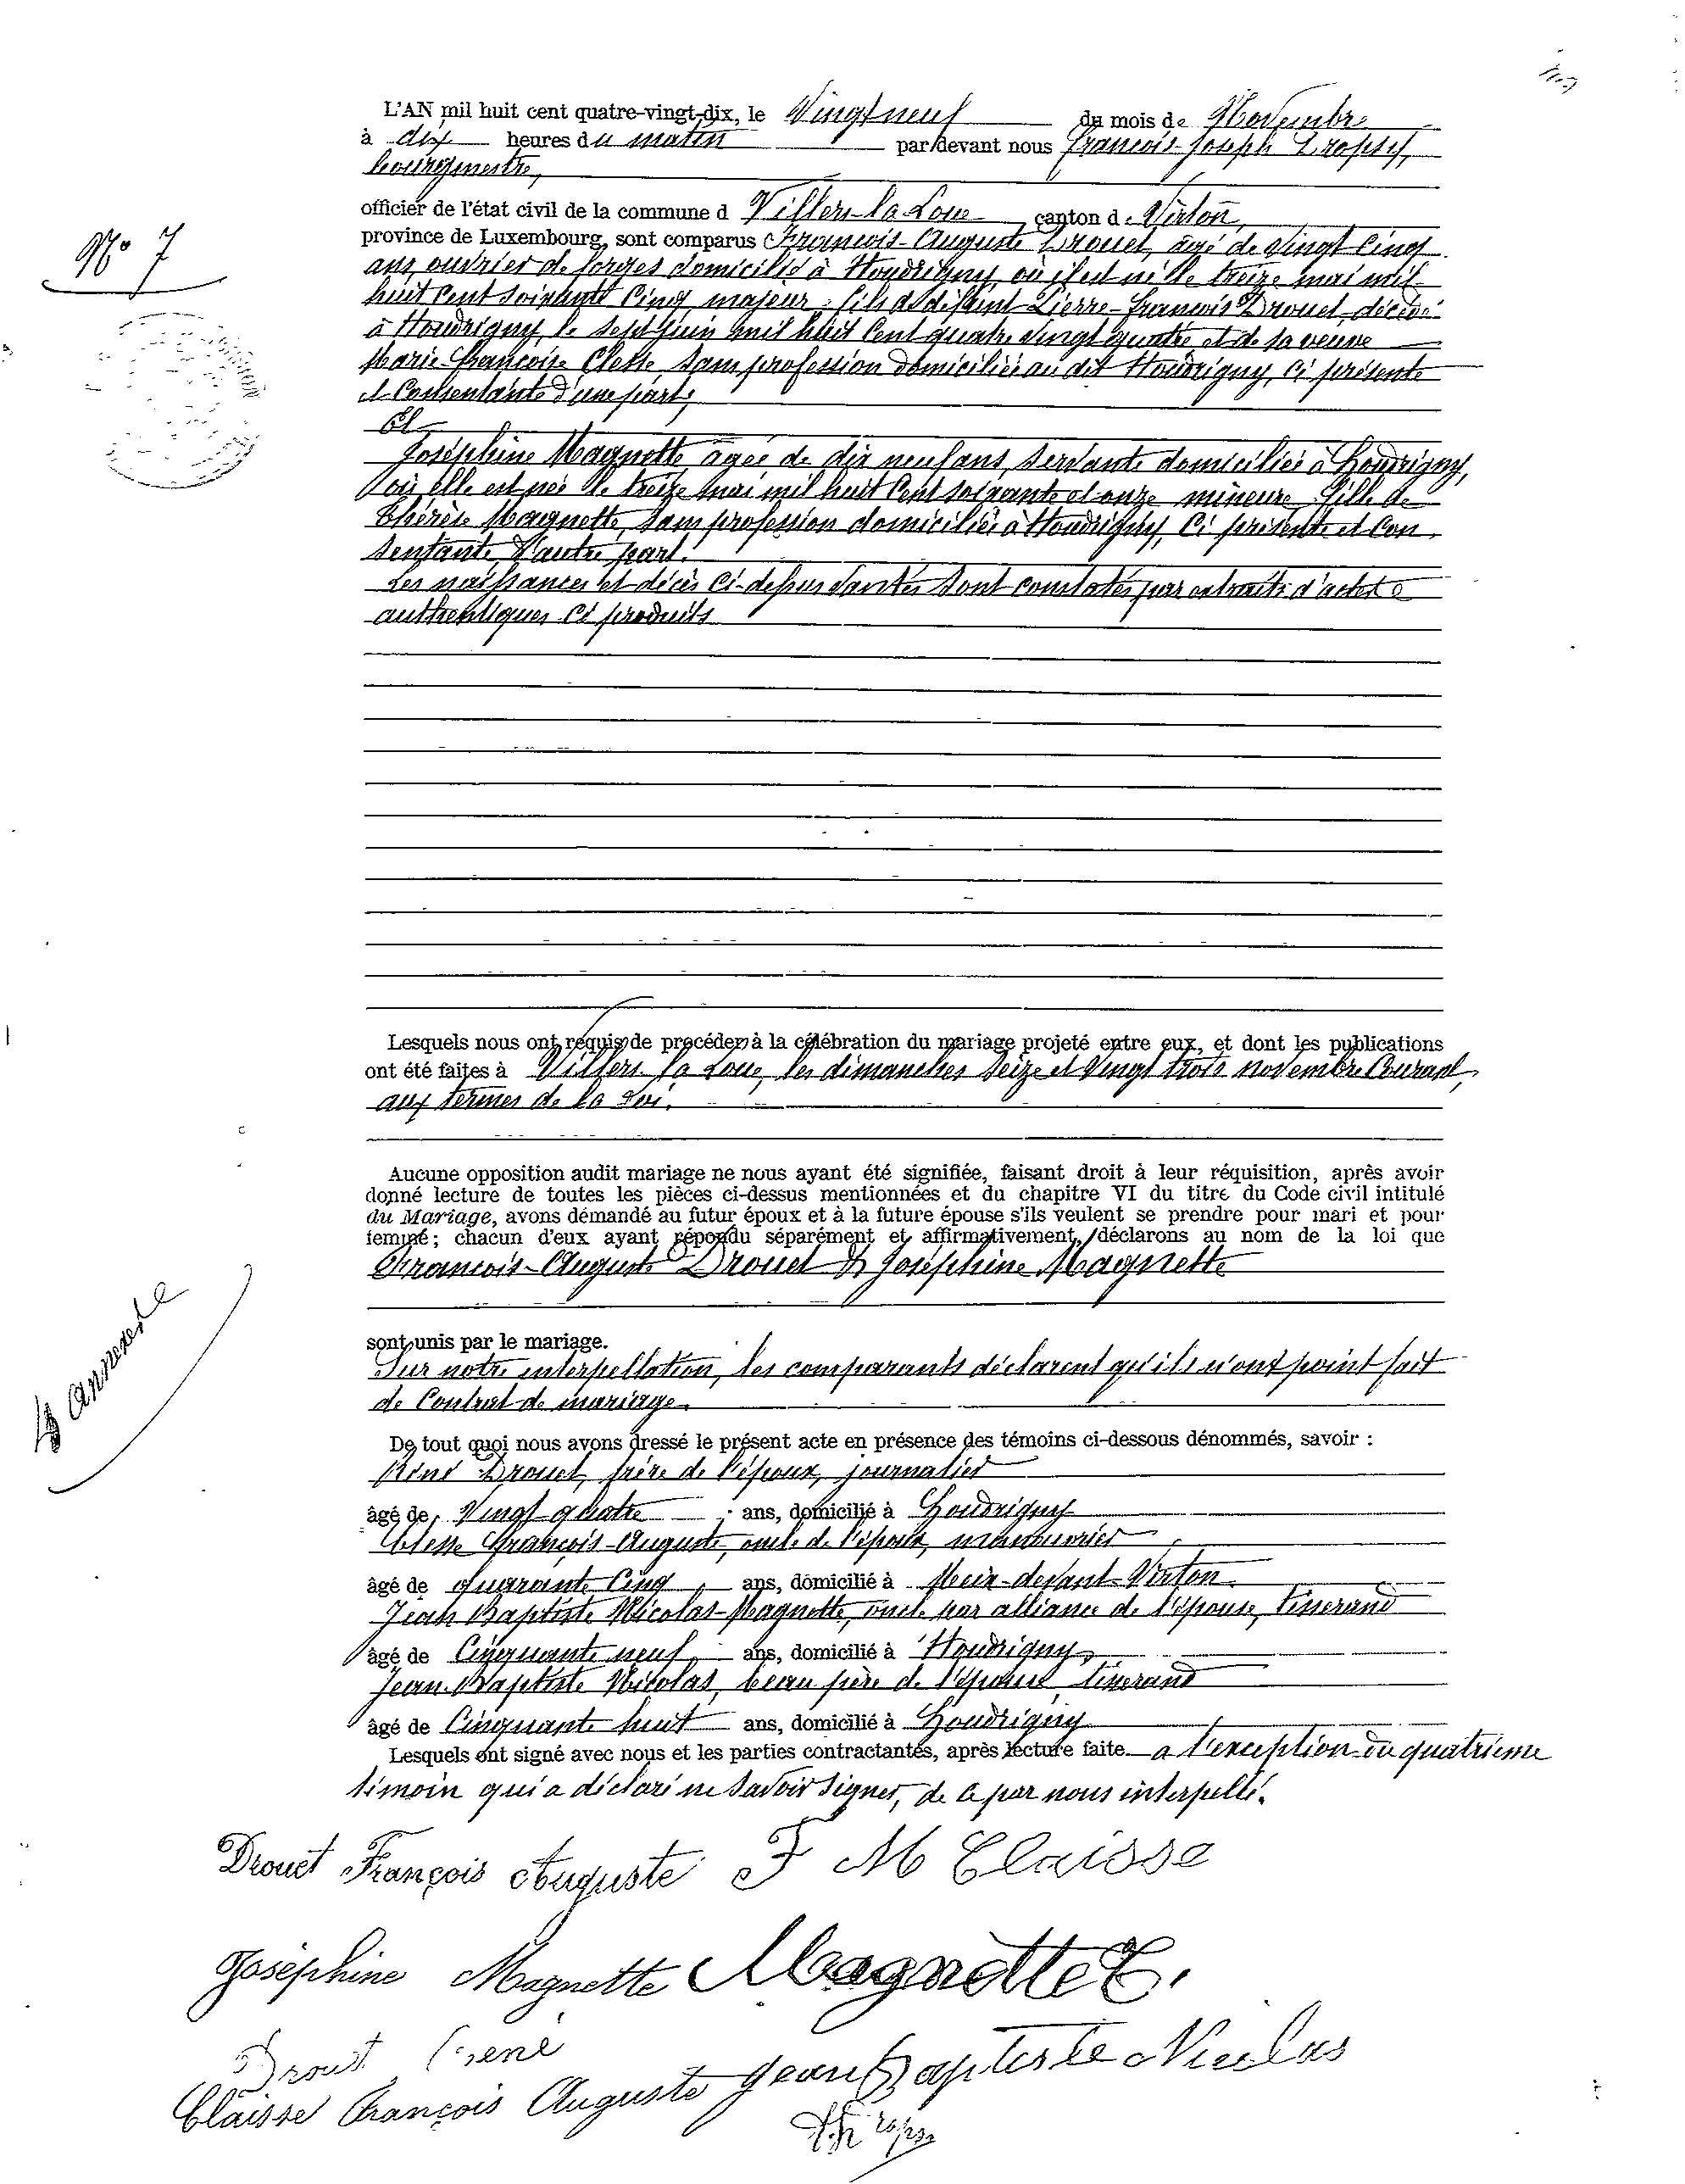 L'AN mil huit cent quatre-vingt-dix, le Vingt neuf du mois de Novembre
à dix heures du matin par devant nous François-Joseph
bourgmestre,
officier de l'état civil de la commune d Villers-la-Loue canton de Virton,
N° 7
province de Luxembourg, sont comparus François-Auguste Drouet, agé de vingt cinq
ans, ouvrier de forges domicilié à Houdrigny, où il est né le treize mai mil
huit cent soixante cinq, majeur, fils de défunt Pierre-François Drouet, décédé
à Houdrigny, le sept juin mil huit cent quatre vingt quatre et de sa veuve
Marie-Françoise Clesse sans profession domiciliée au dit Houdrigny, ci présente
et consentante d'une part;
Et
Joséphine Magnette, agée de dix neuf ans, servante domiciliée à Houdrigny,
où elle est née le treize mai mil huit cent soixante et onze mineure, fille de
Thérèse Magnette, sans profession domiciliée à Houdrigny, ci présente et con
sentante d'autre part.
Les naissances et décès ci-dessus sont constatés par extraits d'actes
authentiques ci produits
Lesquels nous ont requis de procéder à la célébration du mariage projeté entre eux, et dont les publications
ont été faites à Villers la Loue, les dimanches seize et vingt trois novembre courant,
aux termes de la Loi.
Aucune opposition audit mariage ne nous ayant été signifiée, faisant droit à leur réquisition, après avoir
donné lecture de toutes les pièces ci-dessus mentionnées et du chapitre VI du titre du Code civil intitulé
du Mariage, avons démandé au futur époux et à la future épouse s'ils veulent se prendre pour mari et pour
femme; chacun d'eux ayant répondu séparément et affirmativement, déclarons au nom de la loi que
François-Auguste Drouet & Joséphine Magnette
4 annexes
sont unis par le mariage.
Sur notre interpellation, les comparants déclarent qu'ils n'ont point fait
de contrat de mariage.
De tout quoi nous avons dressé le présent acte en présence des témoins ci-dessous dénommés, savoir :
René Drouet, frère de l'époux, journalier
âgé de Vingt quatre ans, domicilié à Houdrigny
Clesse François-Auguste, oncle de l'époux, manouvrier
âgé de quarante cinq, ans, domicilié à Meix-devant-Virton
Jean Baptiste Nicolas-Magnette, oncle par alliance de l'épouse, tisserand
âgé de Cinquante neuf, ans, domicilié à Houdrigny,
Jean-Baptiste Nicolas, beau père de l'épouse, tisserand
âgé de Cinquante huit ans, domicilié à Houdrigny
Lesquels ont signé avec nous et les parties contractantes, après lecture faite à l'exception du quatrième
témoin qui a déclaré ne savoir signer, de ce par nous interpellé.
Drouet François Auguste F M Claisse
Joséphine Magnette Magnette T.
Drouet René
Jean Baptiste Nicolas
Claisse François Auguste